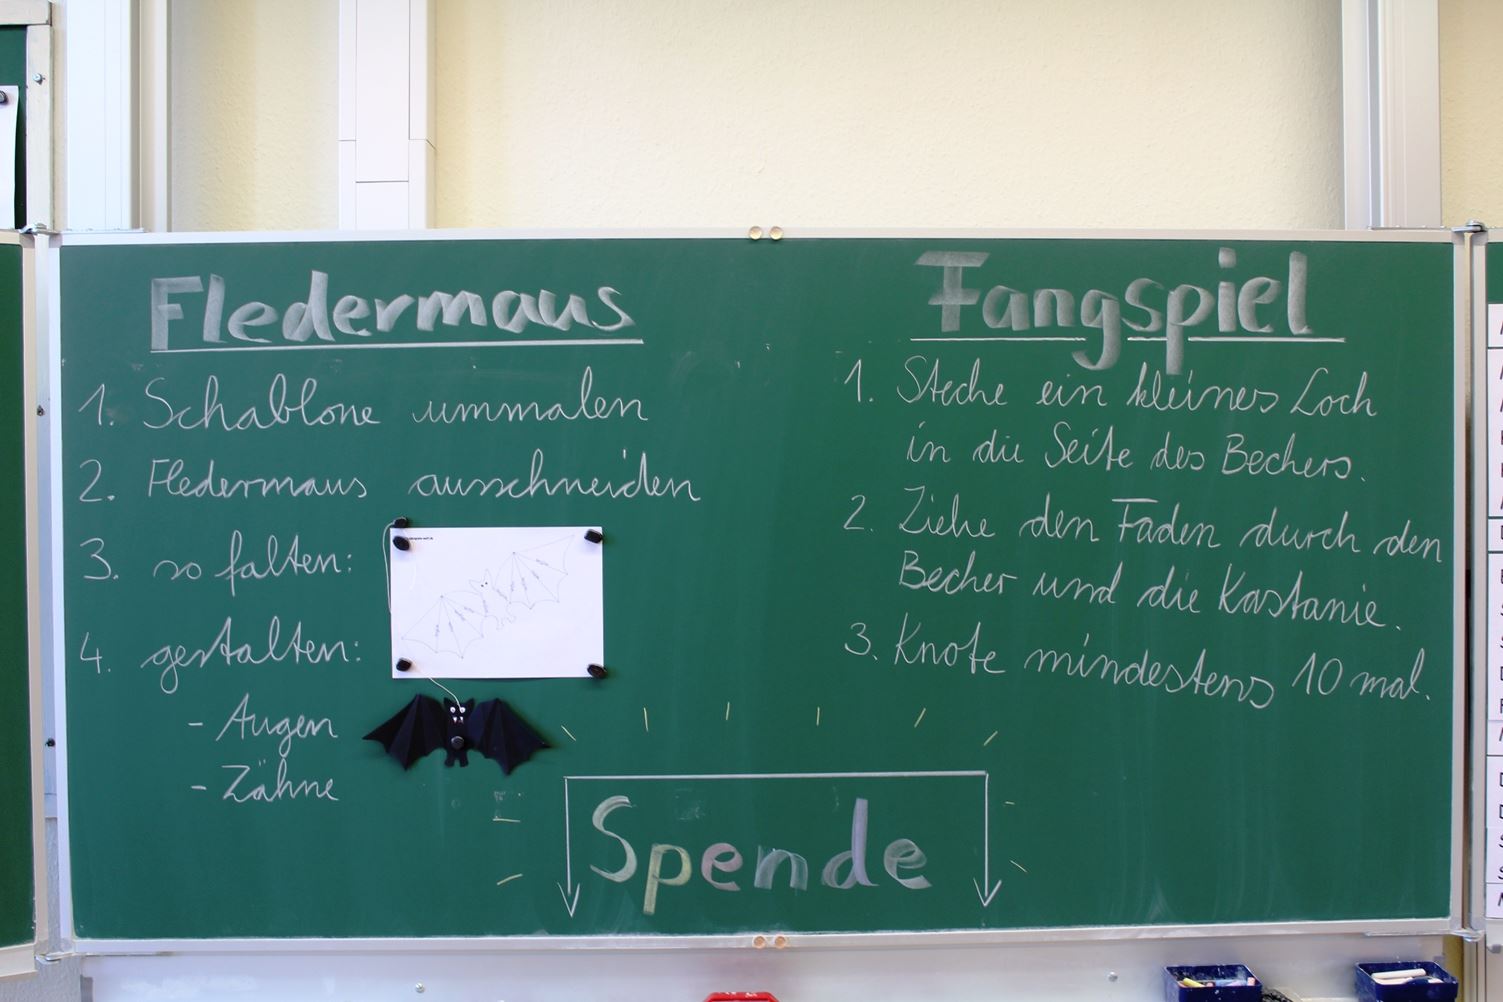 Fledermaus
1. Schablone ummalen
2. Fledermaus ausschneiden
3. so falten:
4. gestalten:
- Augen
- Zähne
Fangspiel
1. Steche ein kleines Loch
in die Seite des Bechers.
2. Ziehe den Faden durch den
Becher und die Kastanie.
3. Knote mindestens 10 mal.
Spende